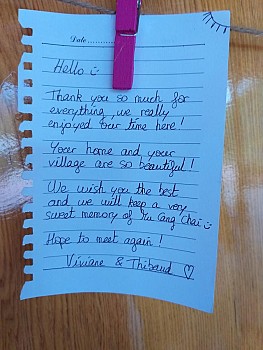 Date.........
Hello :)
Thank you so much for
everything, we really
enjoyed our time here!
Your home and your
village are so beautiful!
We wish you the best
and we will keep a very
sweet memory of Mu Cang Chai :)
Hope to meet again!
Viviane & Thibaud ♡